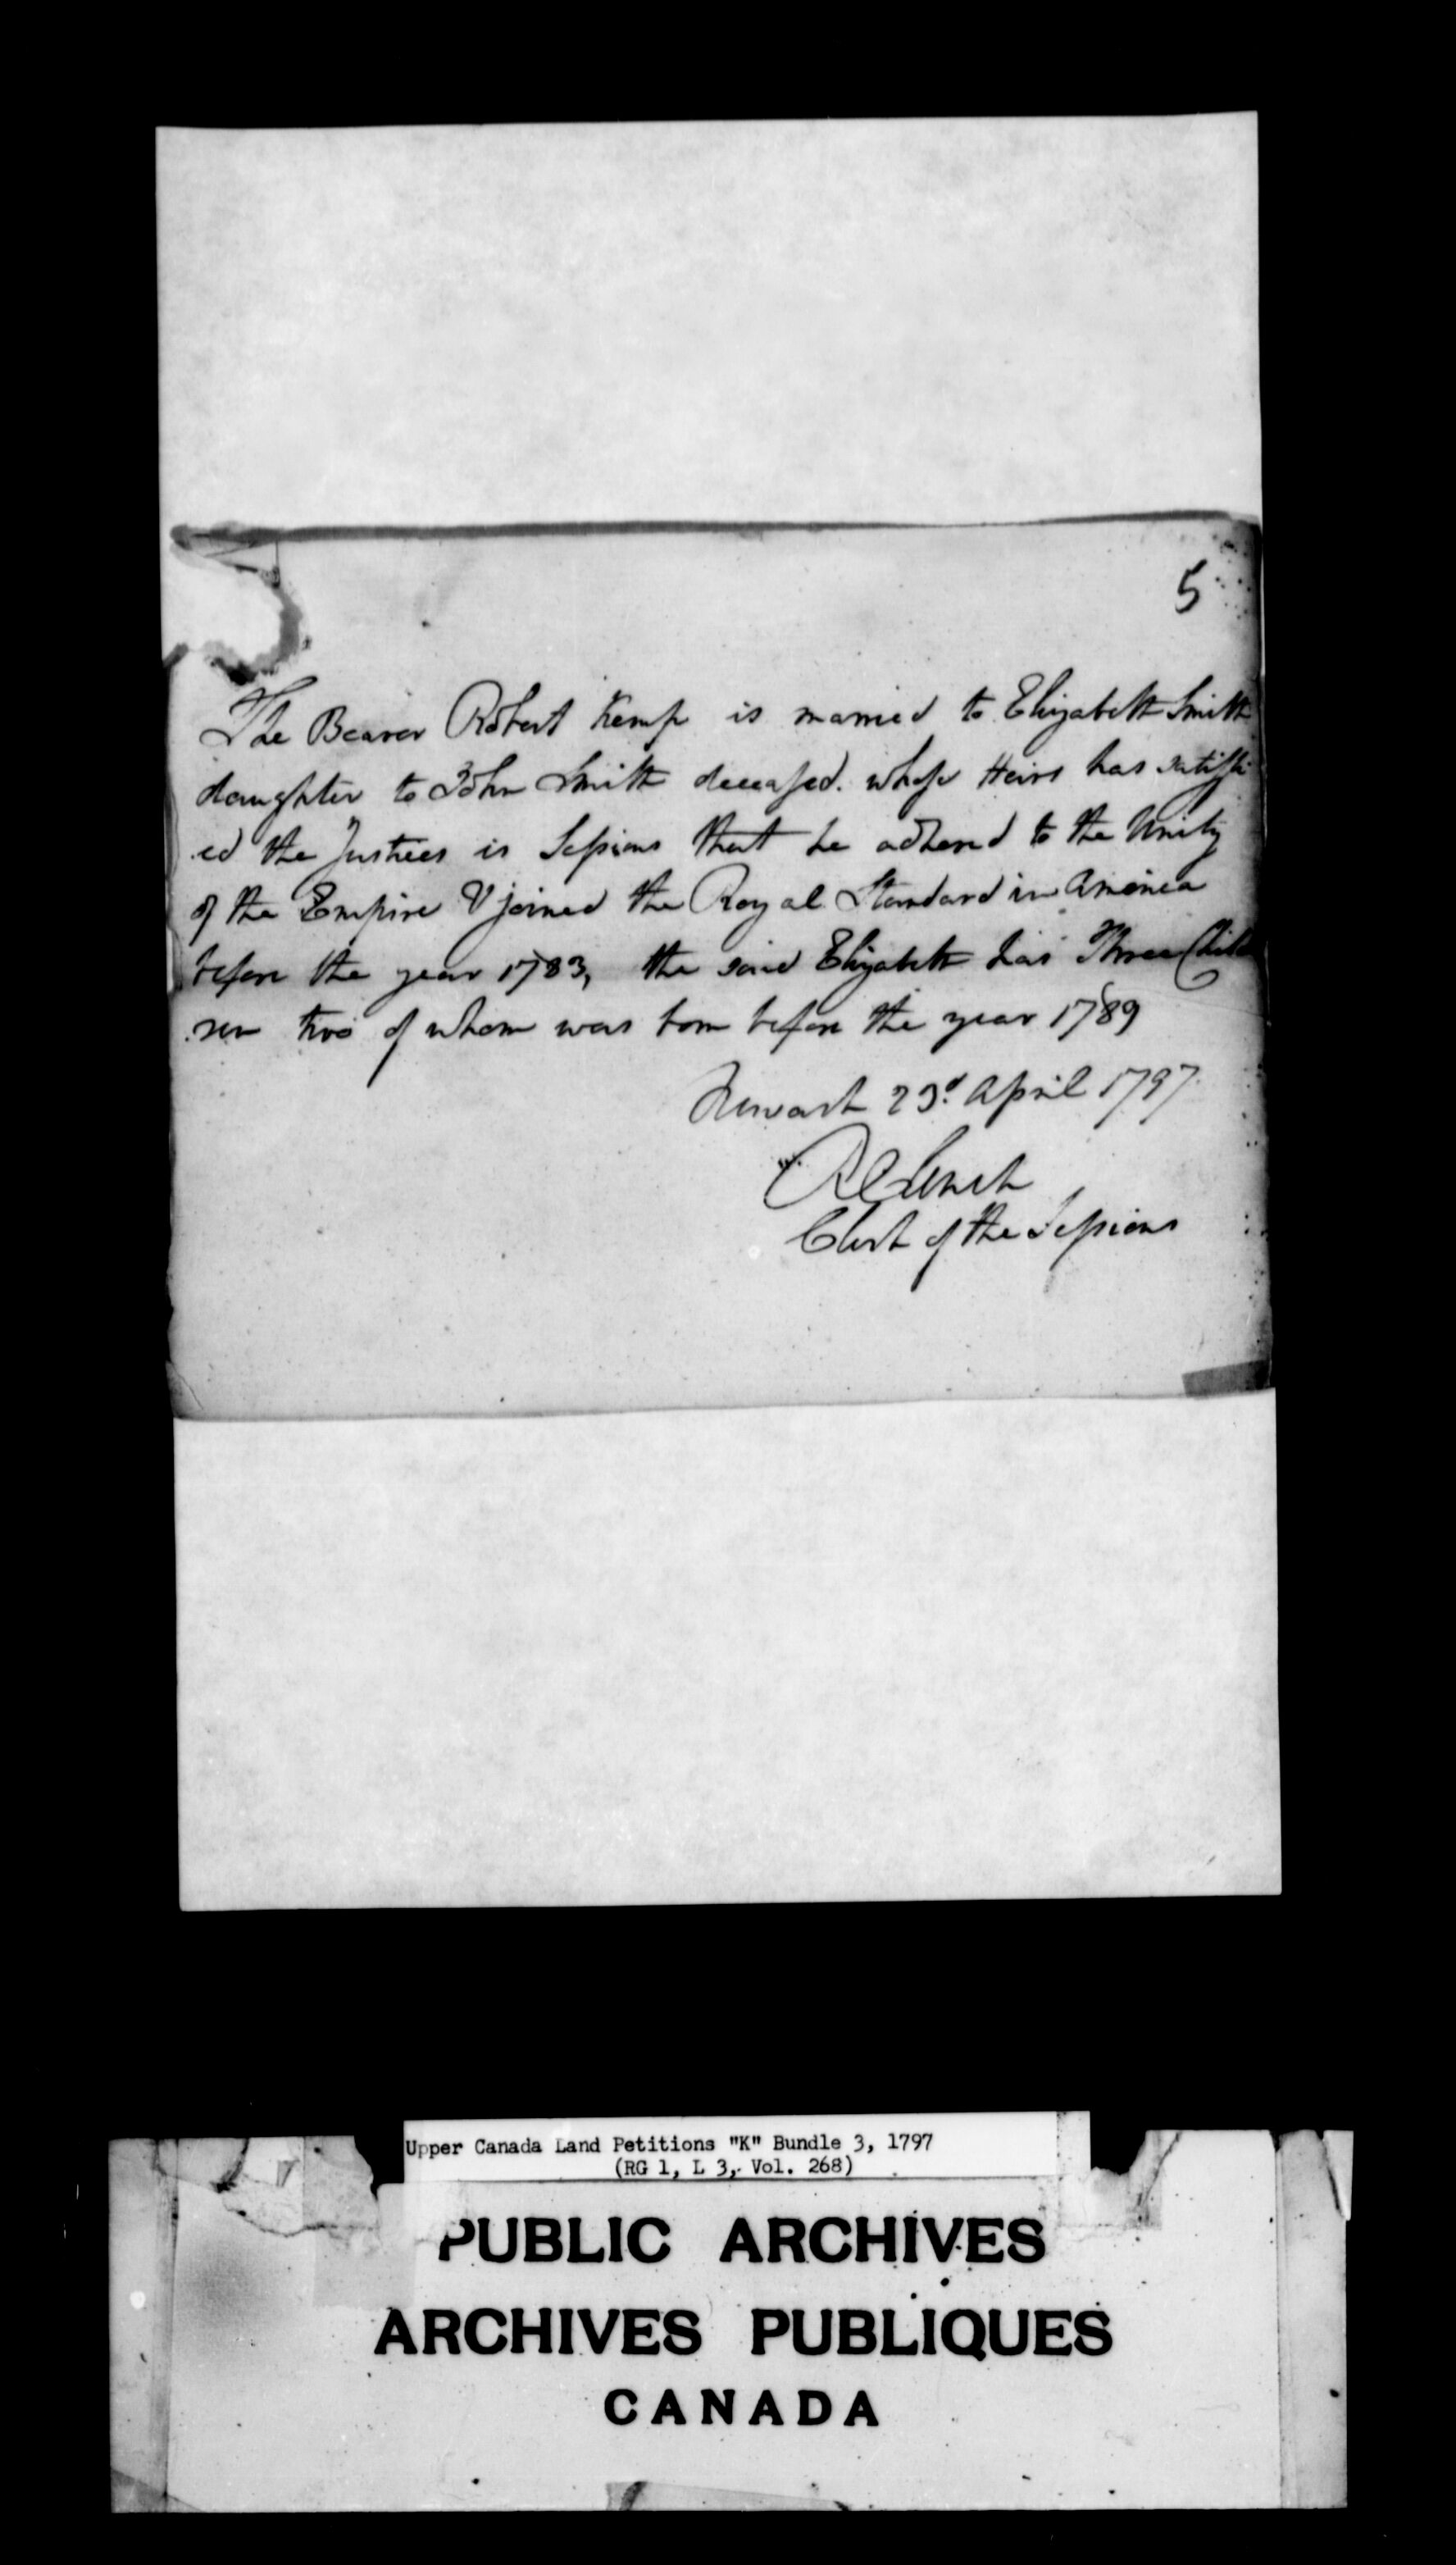 5
The Bearer Robert Kemp is married to Elizabeth Smith
daughter to John Smith deceased. whose Heirs has satisfi
.ed the Justices in Sessions that he adhered to the Unity
of the Empire & joined the Royal Standard in America
before the year 1783, the said Elizabeth has Three Child
.ren two of whom was born before the year 1789
Newark 23d. April 1797.
RClench
Clerk of the Sessions
Upper Canada Land Petitions "K" Bundle 3, 1797
(RG 1, L 3, Vol. 268)
PUBLIC ARCHIVES
ARCHIVES PUBLIQUES
CANADA